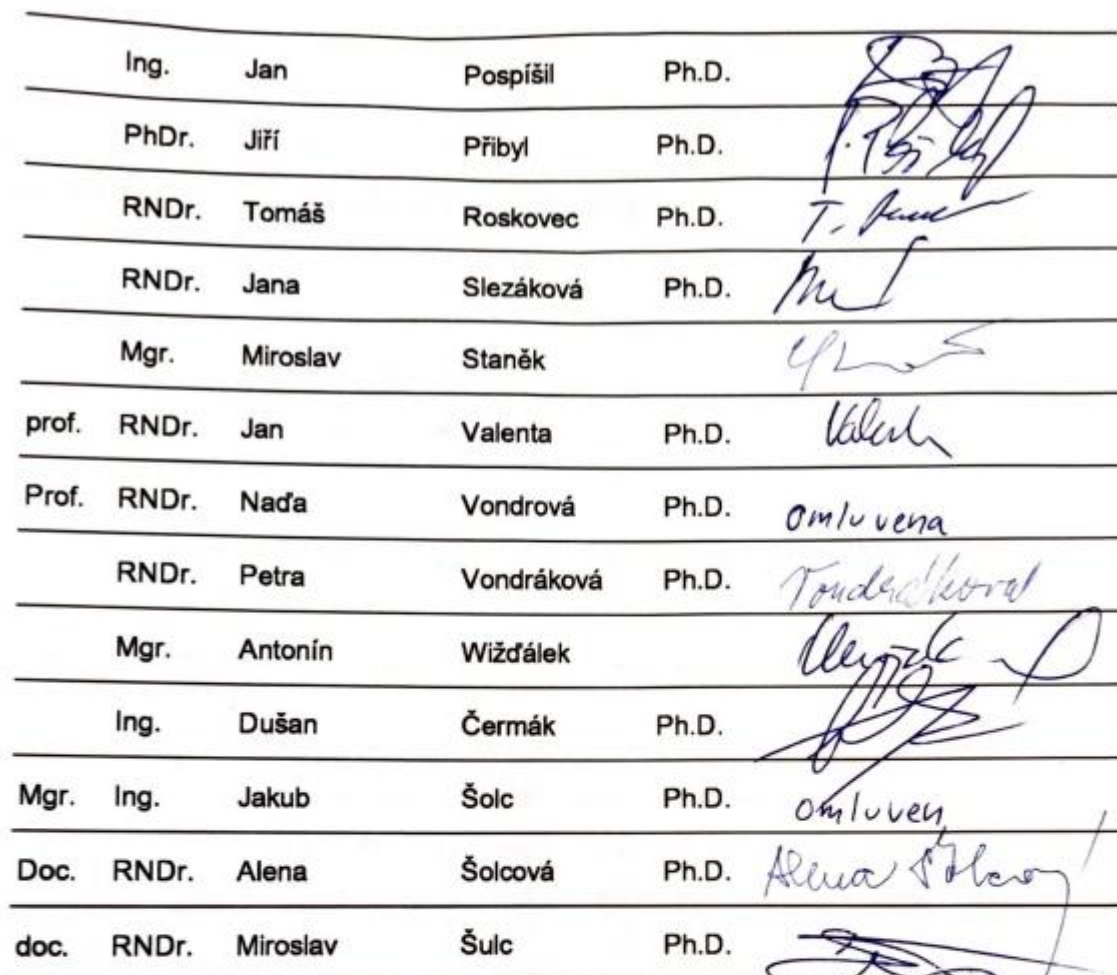 Ing. Jan Pospíšil Ph.D.
PhDr. Jiří Přibyl Ph.D.
RNDr. Tomáš Roskovec Ph.D. T.
RNDr. Jana Slezáková Ph.D.
Mgr. Miroslav Staněk
prof. RNDr. Jan Valenta Ph.D. Valenta
Prof. RNDr. Naďa Vondrová Ph.D. omluvena
RNDr. Petra Vondráková Ph.D. Vondráková
Mgr. Antonín Wižďálek
Ing. Dušan Čermák Ph.D.
Mgr. Ing. Jakub Šolc Ph.D. omluven
Doc. RNDr. Alena Šolcová Ph.D. Alena Šolcová
doc. RNDr. Miroslav Šulc Ph.D.